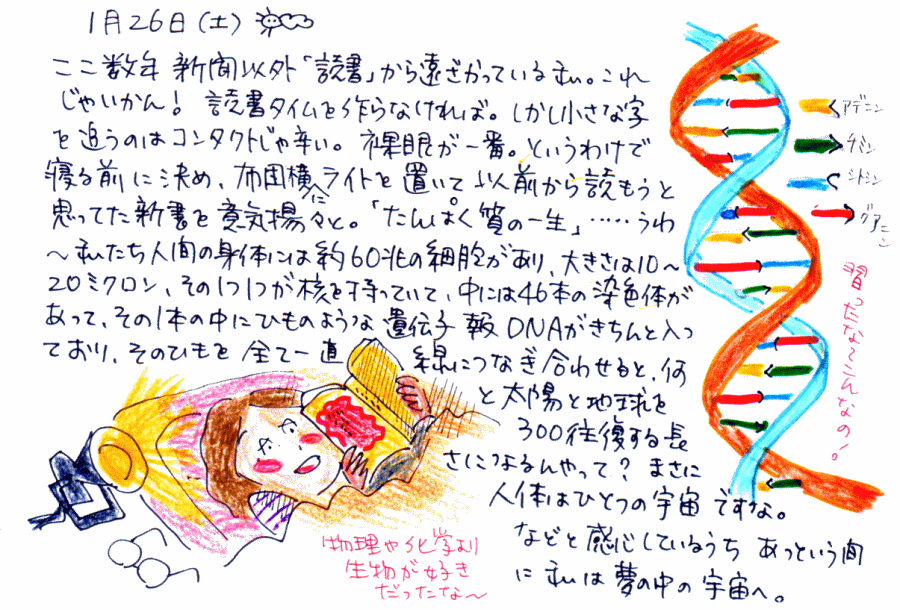 1月26日(土)
ここ数年 新聞以外「読書」から遠ざかっている私。これ
じゃいかん! 読書タイムを作らなければ。しかし小さな字
を追うのはコンタクトじゃ辛い。裸眼が一番。というわけで
寝る前に決め、布団横にライトを置いて 以前から読もうと
思ってた新書を意気揚々と。「たんぱく質の一生」……うわ
~私たち人間の身体には約60兆の細胞があり、大きさは10~
20ミクロン、その1つ1つが核を持っていて、中には46本の染色体が
あって、その1本の中にひものような遺伝子 報DNAがきちんと入っ
ており、そのひもを全て一直線につなぎ合わせると、何
と太陽と地球を
300往復する長
さになるんやって? まさに
人体はひとつの宇宙ですな。
などと感心しているうち あっという間
に私は夢の中の宇宙へ。
物理や化学より
生物が好き
だったな~
アデニン
チミン
シトシン
グアニン
習たな~こんなの!